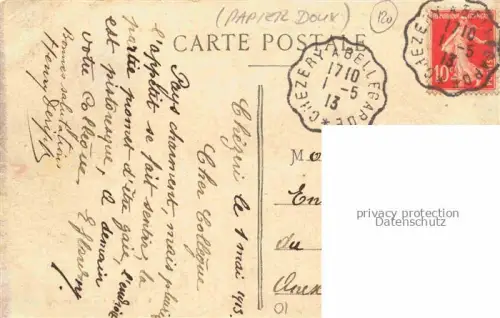 (PAPIER DOUX)
120
CARTE POSTALE
CHEZERY A BELLEGARDE
1710
1-5
13
CHEZERY A
1710
1-5
13
10
Chézery le 1 mai 1913.
Cher Collègue
Pays charmant, mais
l'appétit se fait sentir, la
partie promet d'être gai,
est pittoresque, à demain
votre Collègue.
Bonnes salutations
Henry
M
En
du
01
privacy protection
Datenschutz